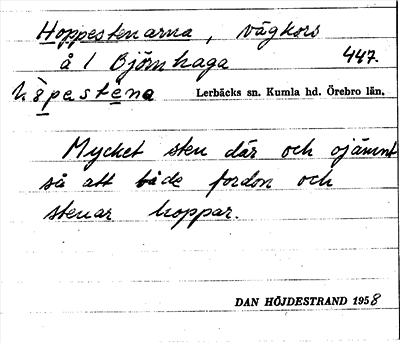 Hoppestenarna, vägkors
å 1 Björnhaga 447.
Lerbäcks sn. Kumla hd. Örebro län.
Mycket sten där och ojämnt
så att både fordon och
stenar hoppar.
DAN HÖJDESTRAND 1958